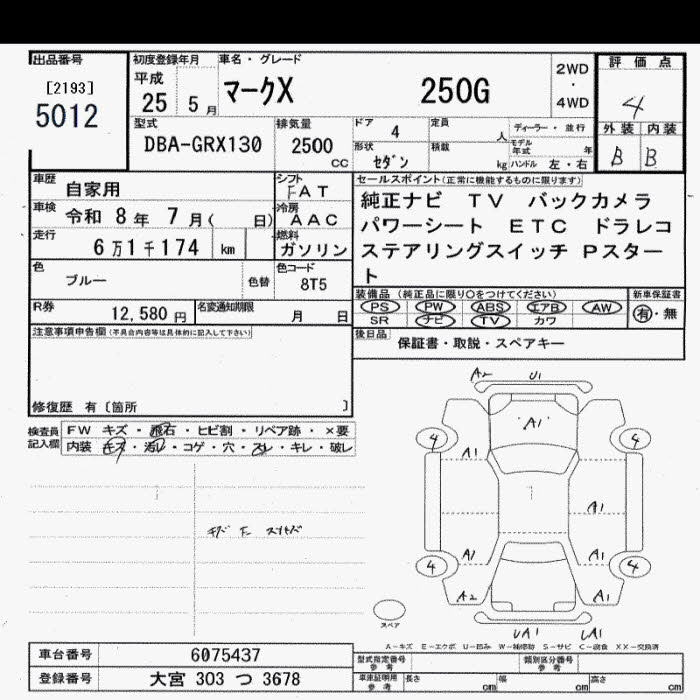 出品番号 初度登録年月 車名・グレード 2WD・4WD 評価点
[2193] 5012 平成 25年 5月 マークX 250G 4
型式 排気量 ドア 4 定員 人 ディーラー・並行 外装 内装
DBA-GRX130 2500 CC 形状 セダン 積載 kg モデル年式 年 ハンドル 左・右 B B
車歴 自家用 シフト FAT セールスポイント(正常に機能するものに限ります)
車検 令和 8年 7月( 日) 冷房 AAC 純正ナビ TV バックカメラ
走行 6万1千174 km 燃料 ガソリン パワーシート ETC ドラレコ
ステアリングスイッチ Pスター
ト
色 ブルー 色替 色コード 8T5
装備品 (純正品に限り○をつけてください) 新車保証書
R券 12,580円 名変通知期限 月 日 PS PW ABS エアB AW 有・無
SR ナビ TV カワ
注意事項申告欄(不具合内容等は具体的に記入して下さい) 後日品 保証書・取説・スペアキー
修復歴 有〔箇所 〕
検査員記入欄 FW キズ・飛石・ヒビ割・リペア跡・×要
内装 キズ・汚レ・コゲ・穴・スレ・キレ・破レ
A2 U1
A1
4 4
A1
A1
A1 A1
4 4
A2 A1
UA1 UA1
スペア
A-キズ E-エクボ U-凹み W-補修跡 S-サビ C-腐食 XX-交換済
車台番号 6075437 型式指定番号 参考 類別区分番号 参考
登録番号 大宮 303 つ 3678 車庫証明用 参考 長さ cm 幅 cm 高さ cm